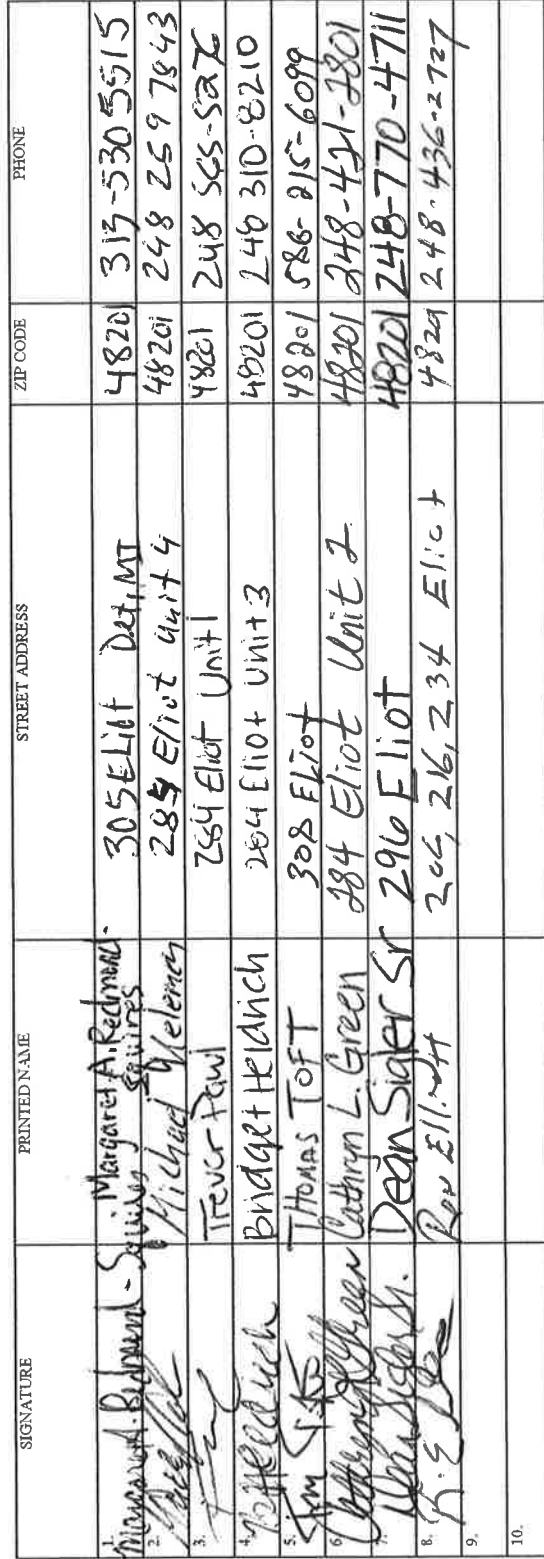 SIGNATURE PRINTED NAME STREET ADDRESS ZIP CODE PHONE
1. Margaret A. Redmond - Squires Margaret A. Redmond - Squires 305 ELiot Det, MI 48201 313-530 5515
2. Michael 284 Eliot Unit 4 48201 248 259 7843
3. Trever Pawl 284 Eliot Unit 1 48201 248
4. Bridget Heidrich 284 Eliot Unit 3 48201 248 310-8210
5. Tom Toft THOMAS TOFT 308 ELiot 48201 586-215-6099
6. Cathryn L Green Cathryn L. Green 284 Eliot Unit 2 48201 248-421-2801
7. Dean Sigler Sr. Dean Sigler Sr 296 Eliot 48201 248-770-4711
8. Ron 216, 234 Eliot 248-436-2727
9.
10.